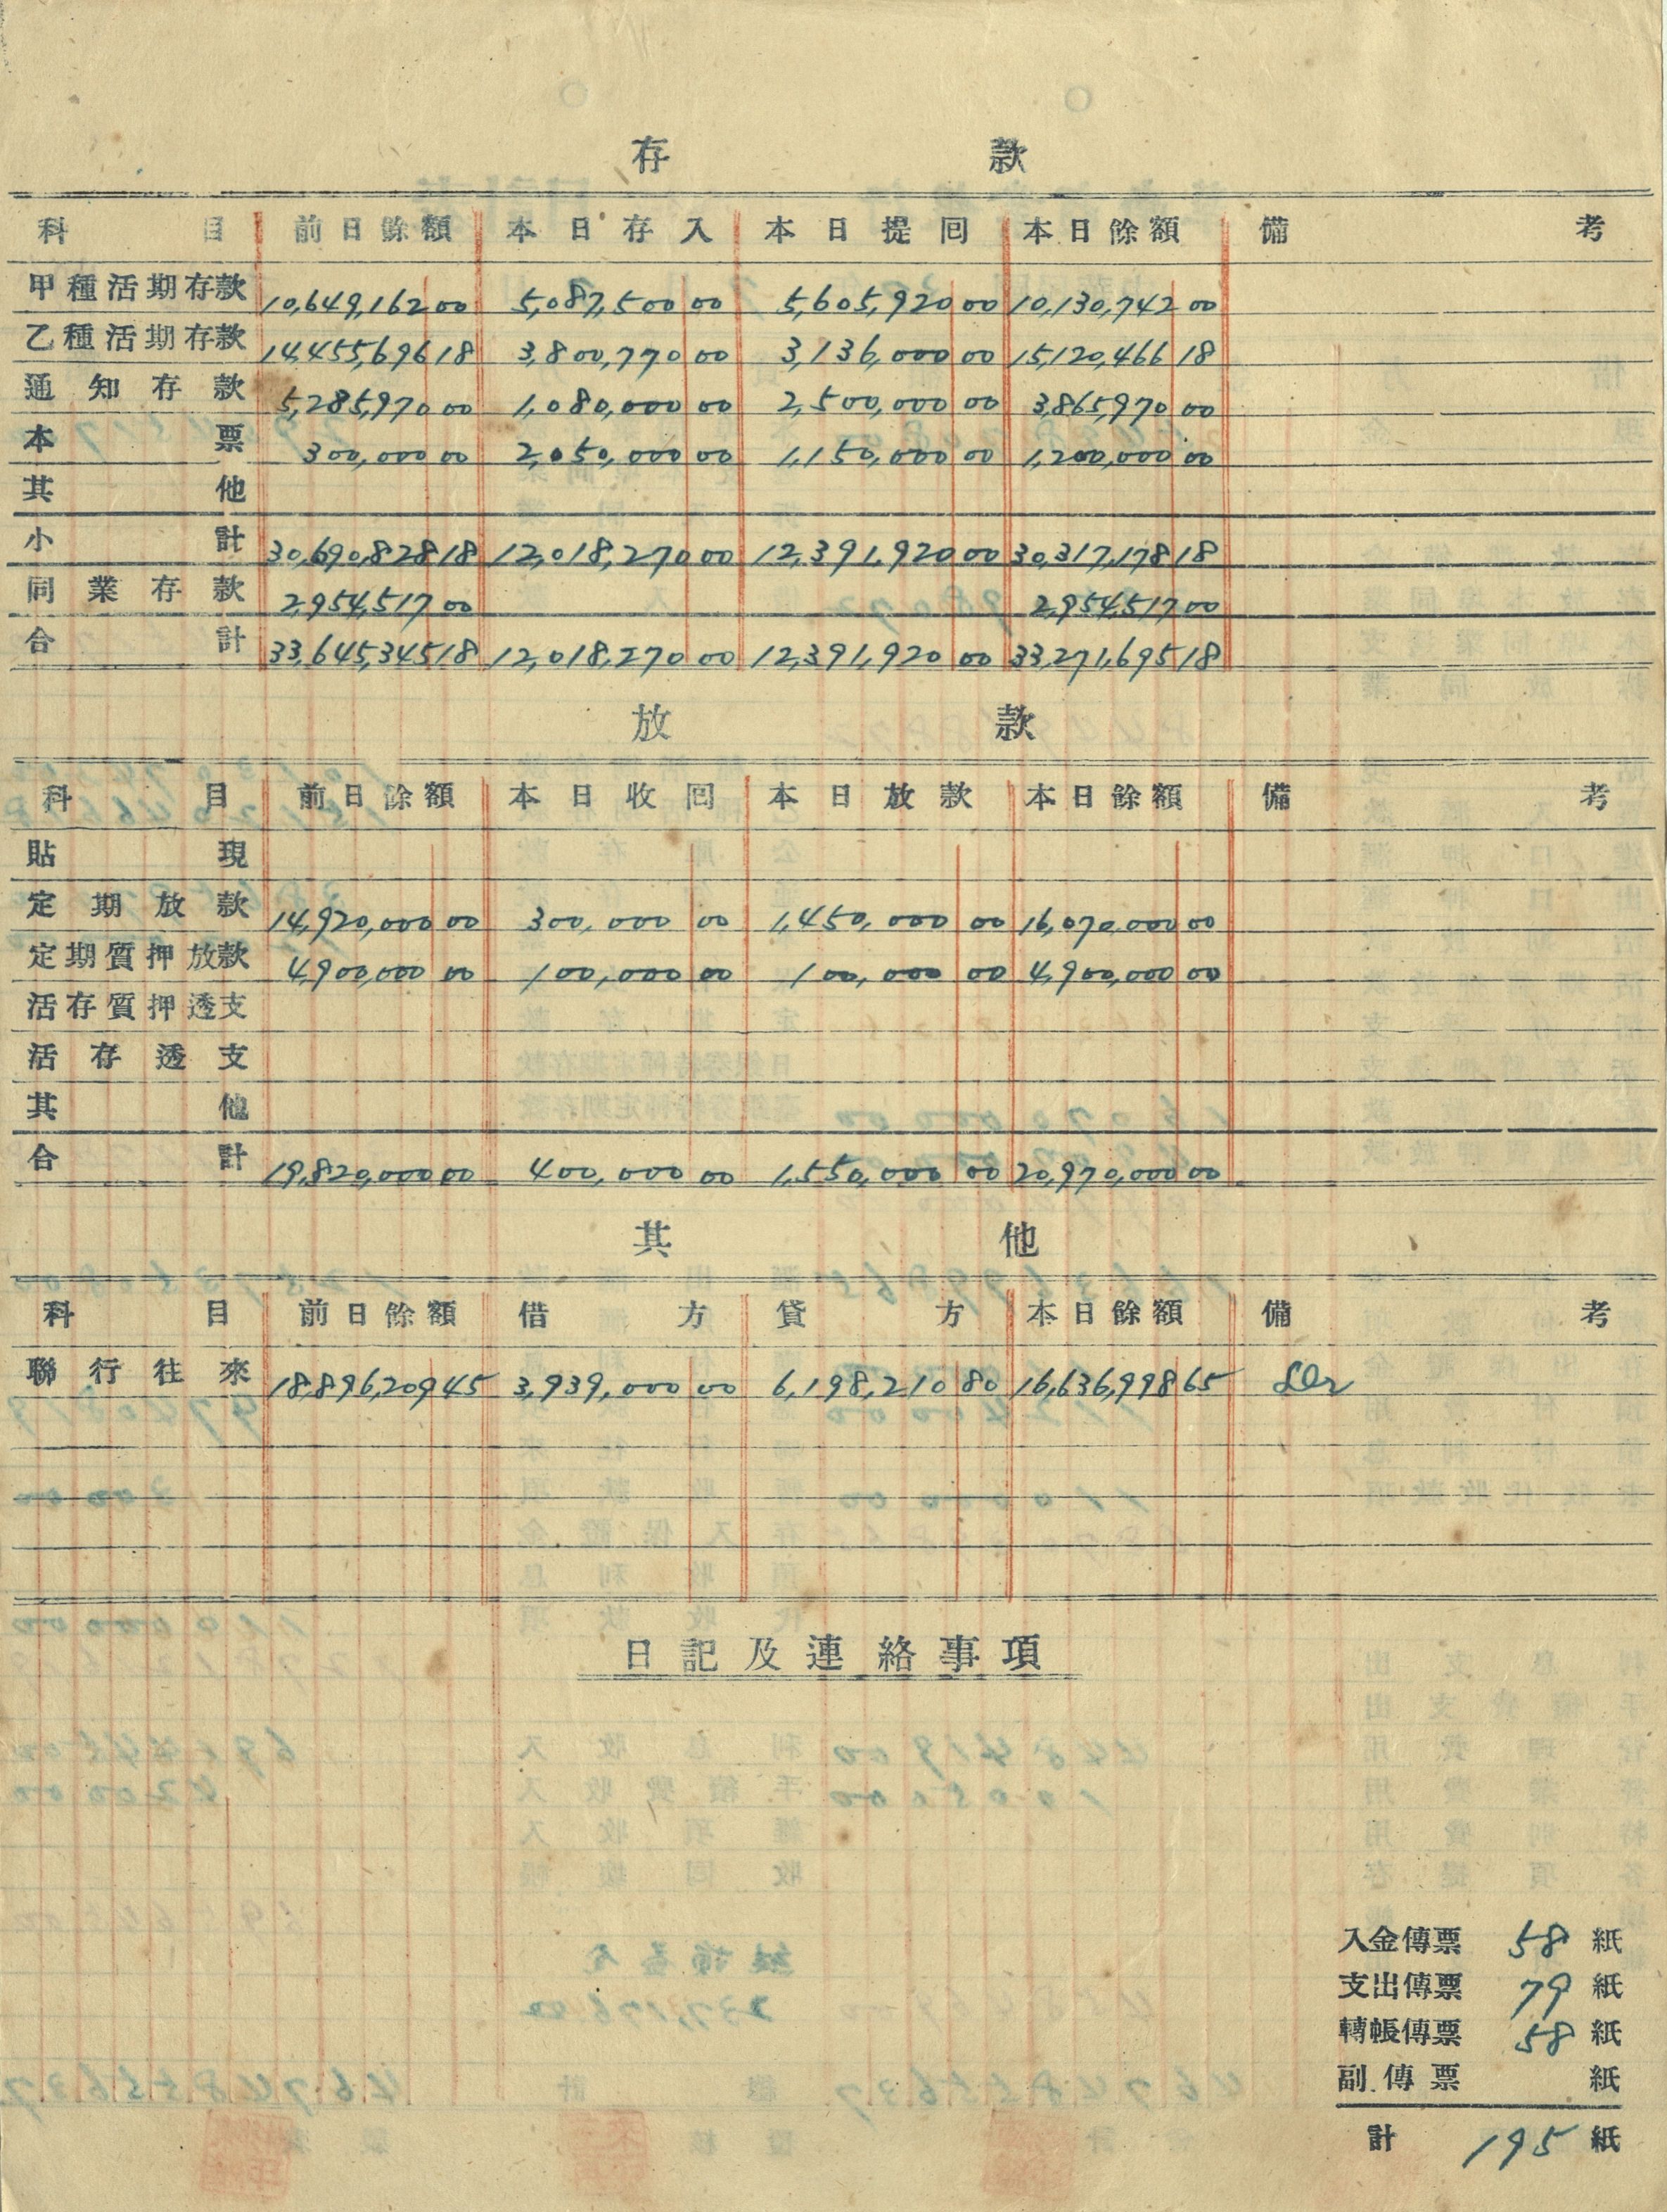 存款
科目 前日餘額 本日存入 本日提囘 本日餘額 備考
甲種活期存款 10,649,162 00 5,087,500 00 5,605,920 00 10,130,742 00
乙種活期存款 14,455,696 18 3,800,770 00 3,136,000 00 15,120,466 18
通知存款 5,285,970 00 1,080,000 00 2,500,000 00 3,865,970 00
本票 300,000 00 2,050,000 00 1,150,000 00 1,200,000 00
其他
小計 30,690,828 18 12,018,270 00 12,391,920 00 30,317,178 18
同業存款 2,954,517 00 2,954,517 00
合計 33,645,345 18 12,018,270 00 12,391,920 00 33,271,695 18
放款
科目 前日餘額 本日收囘 本日放款 本日餘額 備考
貼現
定期放款 14,920,000 00 300,000 00 1,450,000 00 16,070,000 00
定期質押放款 4,900,000 00 100,000 00 100,000 00 4,900,000 00
活存質押透支
活存透支
其他
合計 19,820,000 00 400,000 00 1,550,000 00 20,970,000 00
其他
科目 前日餘額 借方 貸方 本日餘額 備考
聯行往來 18,896,209 45 3,939,000 00 6,198,210 80 16,636,998 65 Dr
日記及連絡事項
入金傳票 58 紙
支出傳票 79 紙
轉帳傳票 58 紙
副傳票 紙
計 195 紙